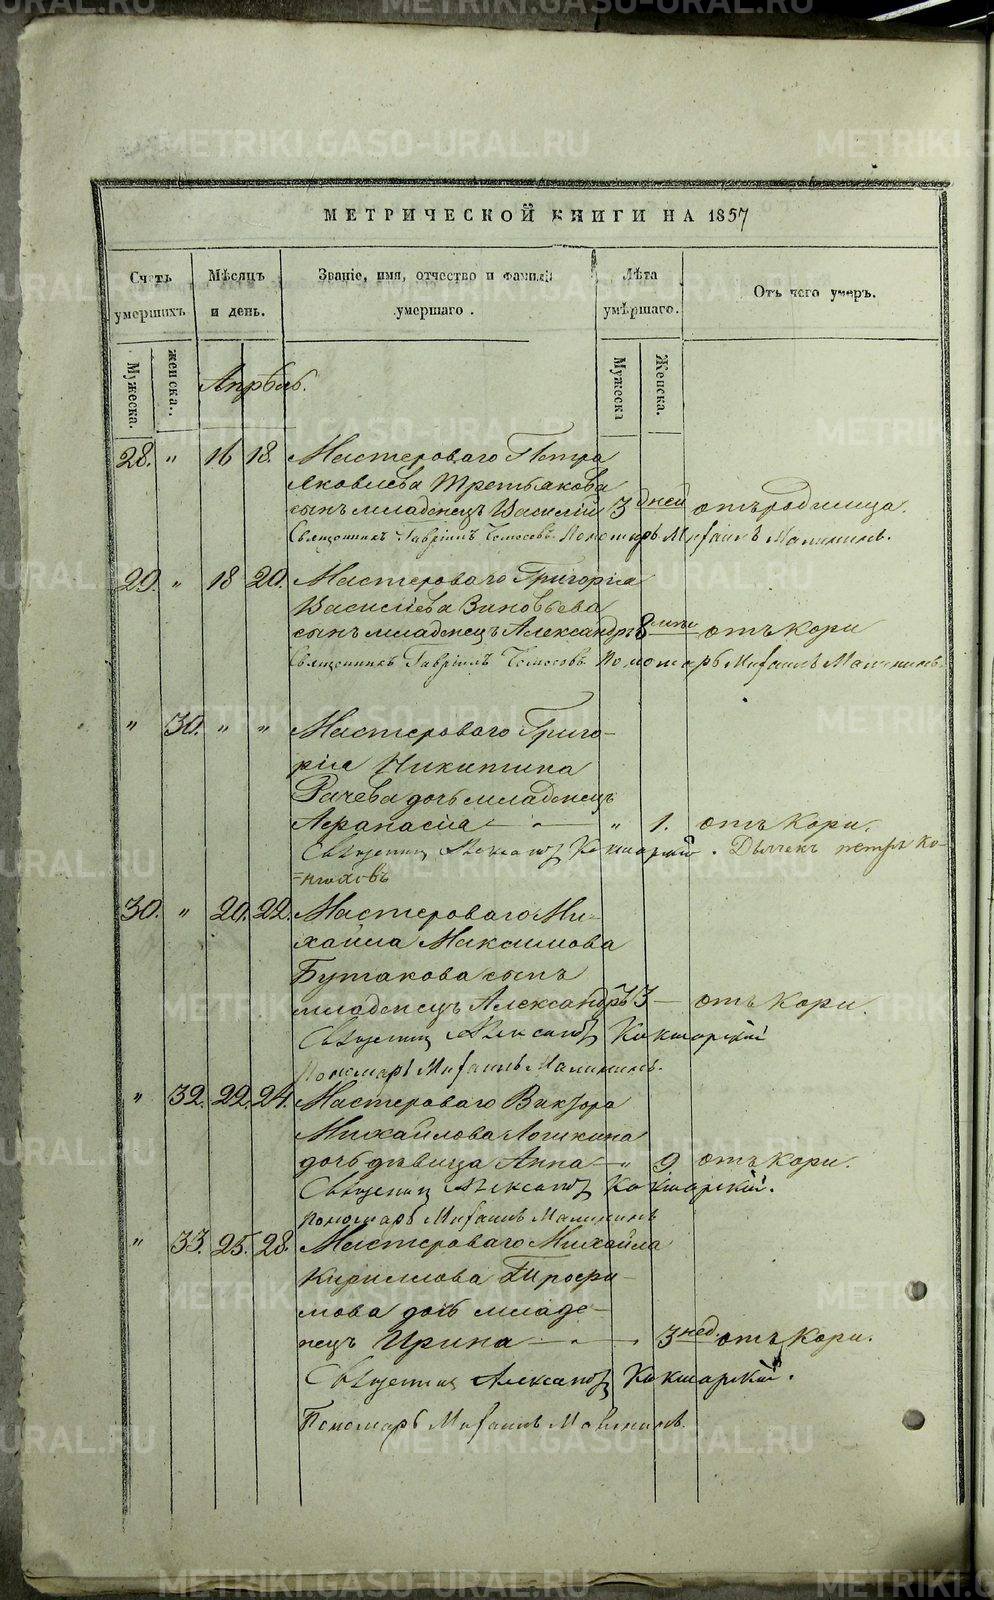 МЕТРИЧЕСКОЙ КНИГИ НА 1857
Счетъ умершихъ
Мѣсяцъ и день.
Званіе, имя, отчество и фамилія умершаго.
Лѣта умершаго.
Отъ чего умеръ.
Мужеска.
женска.
Мужеска
Женска.
Апрѣль.
28. " 16 18. Мастероваго Петра
Яковлева Третьякова
сынъ младенецъ Василій 3 дней отъ родимца.
Священникъ Гавріилъ Пономарь Михаилъ Малининъ.
29. " 18 20. Мастероваго Григорія
Василіева Зиновьева
сынъ младенецъ Александръ 8 отъ кори
Священникъ Гавріилъ Пономарь Михаилъ Малининъ.
" 30. " " Мастероваго Григо-
рія Никитина
Рачева дочь младенецъ
Афанасія — " 1. отъ кори.
Священникъ Александръ Кокшарскій. Дьячекъ Петръ Ко-
=нюховъ
30. " 20. 22. Мастероваго Ми-
хаила Максимова
Бутакова сынъ
младенецъ Александръ 3 — отъ кори.
Священникъ Александръ Кокшарскій
Пономарь Михаилъ Малининъ.
" 32. 22. 24. Мастероваго Виктора
Михайлова Лошкина
дочь дѣвица Анна — " 9 отъ кори.
Священникъ Александръ Кокшарскій.
Пономарь Михаилъ Малининъ
" 33. 25. 28. Мастероваго Михайла
Кириллова Трофи-
мова дочь младе-
нецъ Ирина — 3 нед. отъ кори.
Священникъ Александръ Кокшарскій.
Пономарь Михаилъ Малининъ.
METRIKI.GASO-URAL.RU